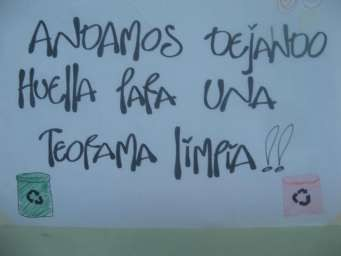 ANDAMOS DEJANDO
HUELLA PARA UNA
TEORAMA LIMPIA!!